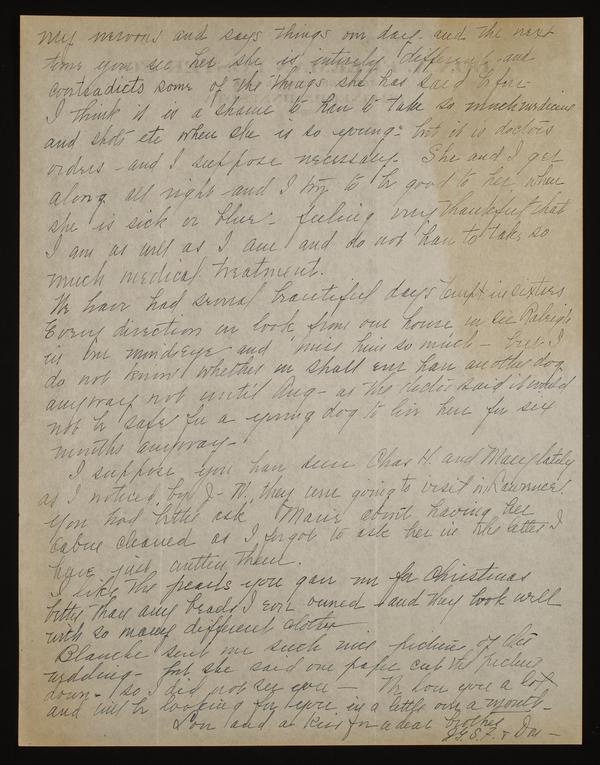 very nervous and says things one day and the next
time you see her she is entirely different and
contradicts some of the things she has said before.
I think it is a shame to have to take so much medicine
and shots etc when she is so young - but it is doctors
orders - and I suppose necessary. She and I get
along all right - and I try to be good to her when
she is sick or blue - feeling very thankful that
I am as well as I am and do not have to take so
much medical treatment.
We have had several beautiful days in sixties
Every direction we look from our house we see Raleigh
in our minds eye and miss him so much - but I
do not know whether we shall ever have another dog
anyway not until Aug - as the doctor said it would
not be safe for a young dog to live here for six
months anyway -
I suppose you have seen Chas H. and Mary lately
as I noticed by J-W. they were going to visit in Lawrence.
You had better ask Marie about having her
cabin cleaned as I forgot to ask her in the letter I
have just written them.
I like the pearls you gave me for Christmas
better than any beads I ever owned and they look well
with so many different clothes
Blanche sent me such nice picture of her
wedding - but she said one paper cut the picture
down - so I did not see you - We love you a lot
and will be looking for you in a little over a month -
Love and a kiss for a dear brother
& Don -